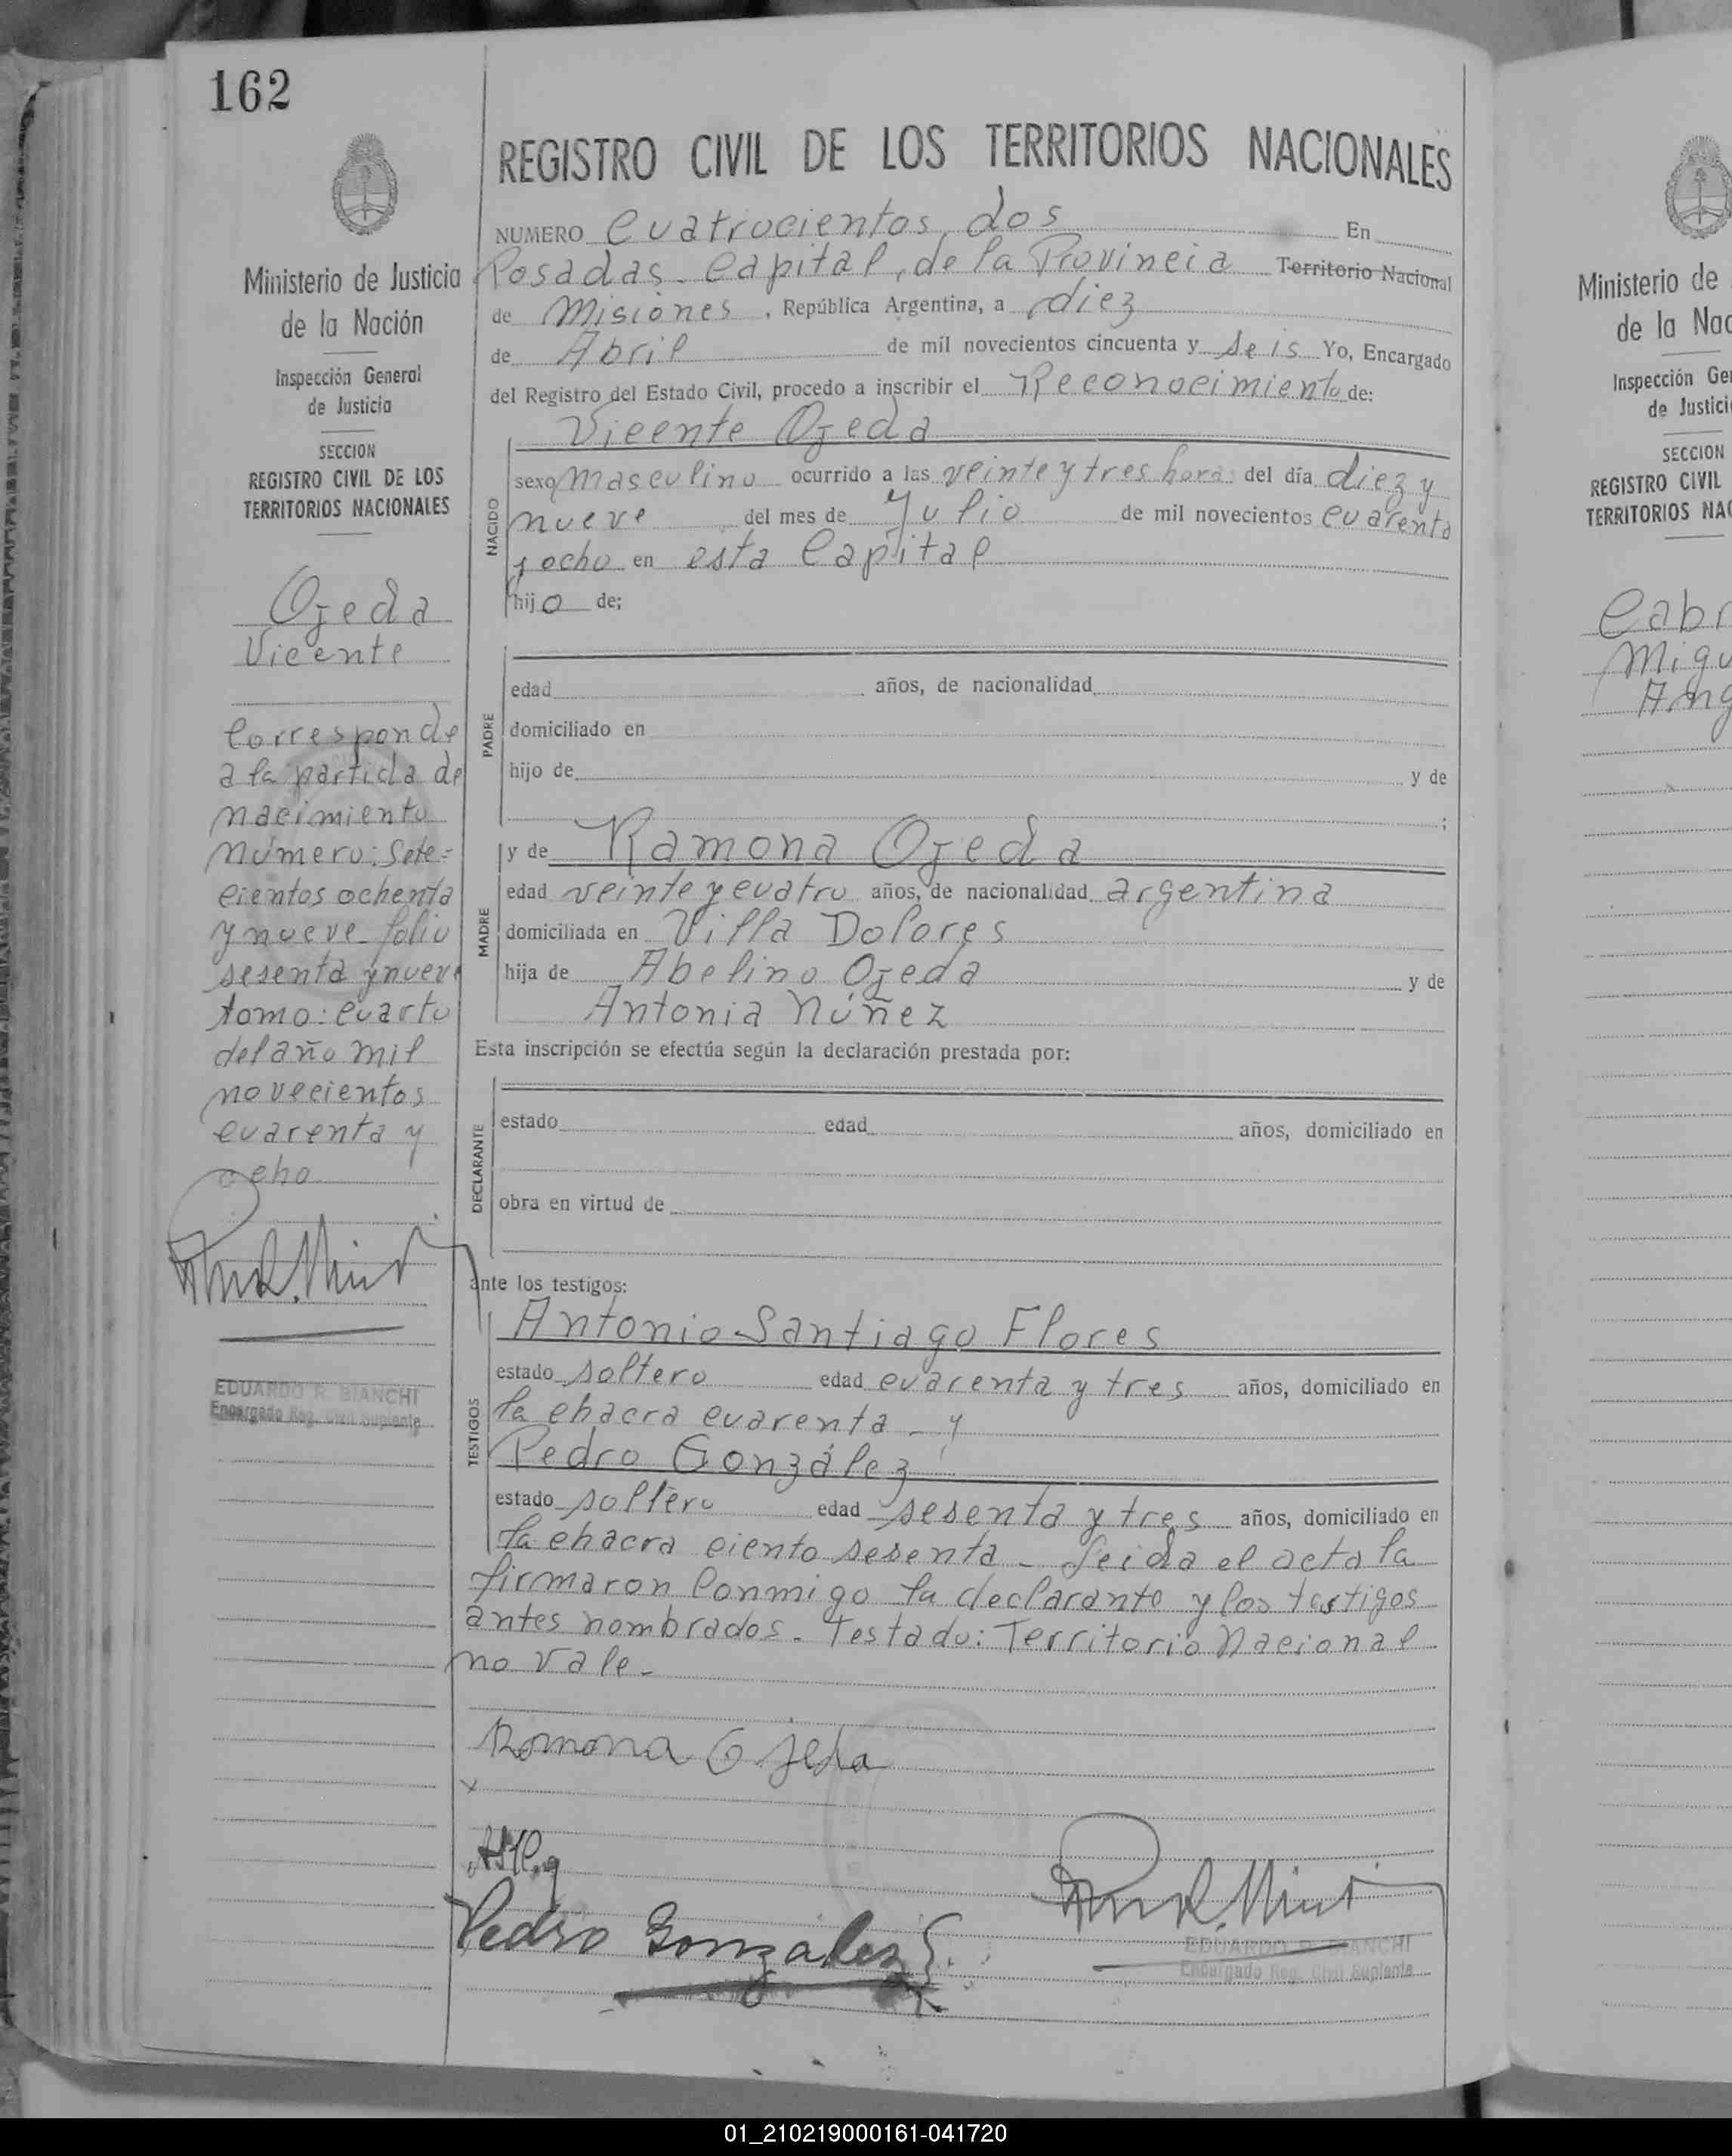 162
REGISTRO CIVIL DE LOS TERRITORIOS NACIONALES
Ministerio de Justicia
de la Nación
Inspección General
de Justicia
SECCION
REGISTRO CIVIL DE LOS
TERRITORIOS NACIONALES
Ojeda
Vicente
Corresponde
a la partida de
nacimiento
número: Sete=
cientos ochenta
y nueve folio
sesenta y nueve
tomo: cuarto
del año mil
novecientos
cuarenta y
ocho.
EDUARDO R. BIANCHI
Encargado Reg. Civil Suplente
NUMERO Cuatrocientos dos En
Posadas. Capital, de la Provincia Territorio Nacional
de Misiones, República Argentina, a diez
de Abril de mil novecientos cincuenta y seis Yo, Encargado
del Registro del Estado Civil, procedo a inscribir el Reconocimiento de:
Vicente Ojeda
NACIDO
sexo masculino ocurrido a las veinte y tres horas del día diez y
nueve del mes de Julio de mil novecientos cuarenta
y ocho en esta Capital
hijo de;
PADRE
edad años, de nacionalidad
domiciliado en
hijo de y de
;
MADRE
y de Ramona Ojeda
edad veinte y cuatro años, de nacionalidad argentina
domiciliada en Villa Dolores
hija de Abelino Ojeda y de
Antonia Núñez
Esta inscripción se efectúa según la declaración prestada por:
DECLARANTE
estado edad años, domiciliado en
obra en virtud de
ante los testigos:
TESTIGOS
Antonio Santiago Flores
estado soltero edad cuarenta y tres años, domiciliado en
la chacra cuarenta - y
Pedro González
estado soltero edad sesenta y tres años, domiciliado en
la chacra ciento sesenta - Leida el acta la
firmaron conmigo la declarante y los testigos
antes nombrados. Testado: Territorio Nacional
no vale -
Romona Ojeda
x
Pedro Gonzalez
EDUARDO R. BIANCHI
Encargado Reg. Civil Suplente
Ministerio de
de la Nac
Inspección Ge
de Justici
SECCION
REGISTRO CIVIL
TERRITORIOS NAC
Cabr
Migu
Ang
01_210219000161-041720